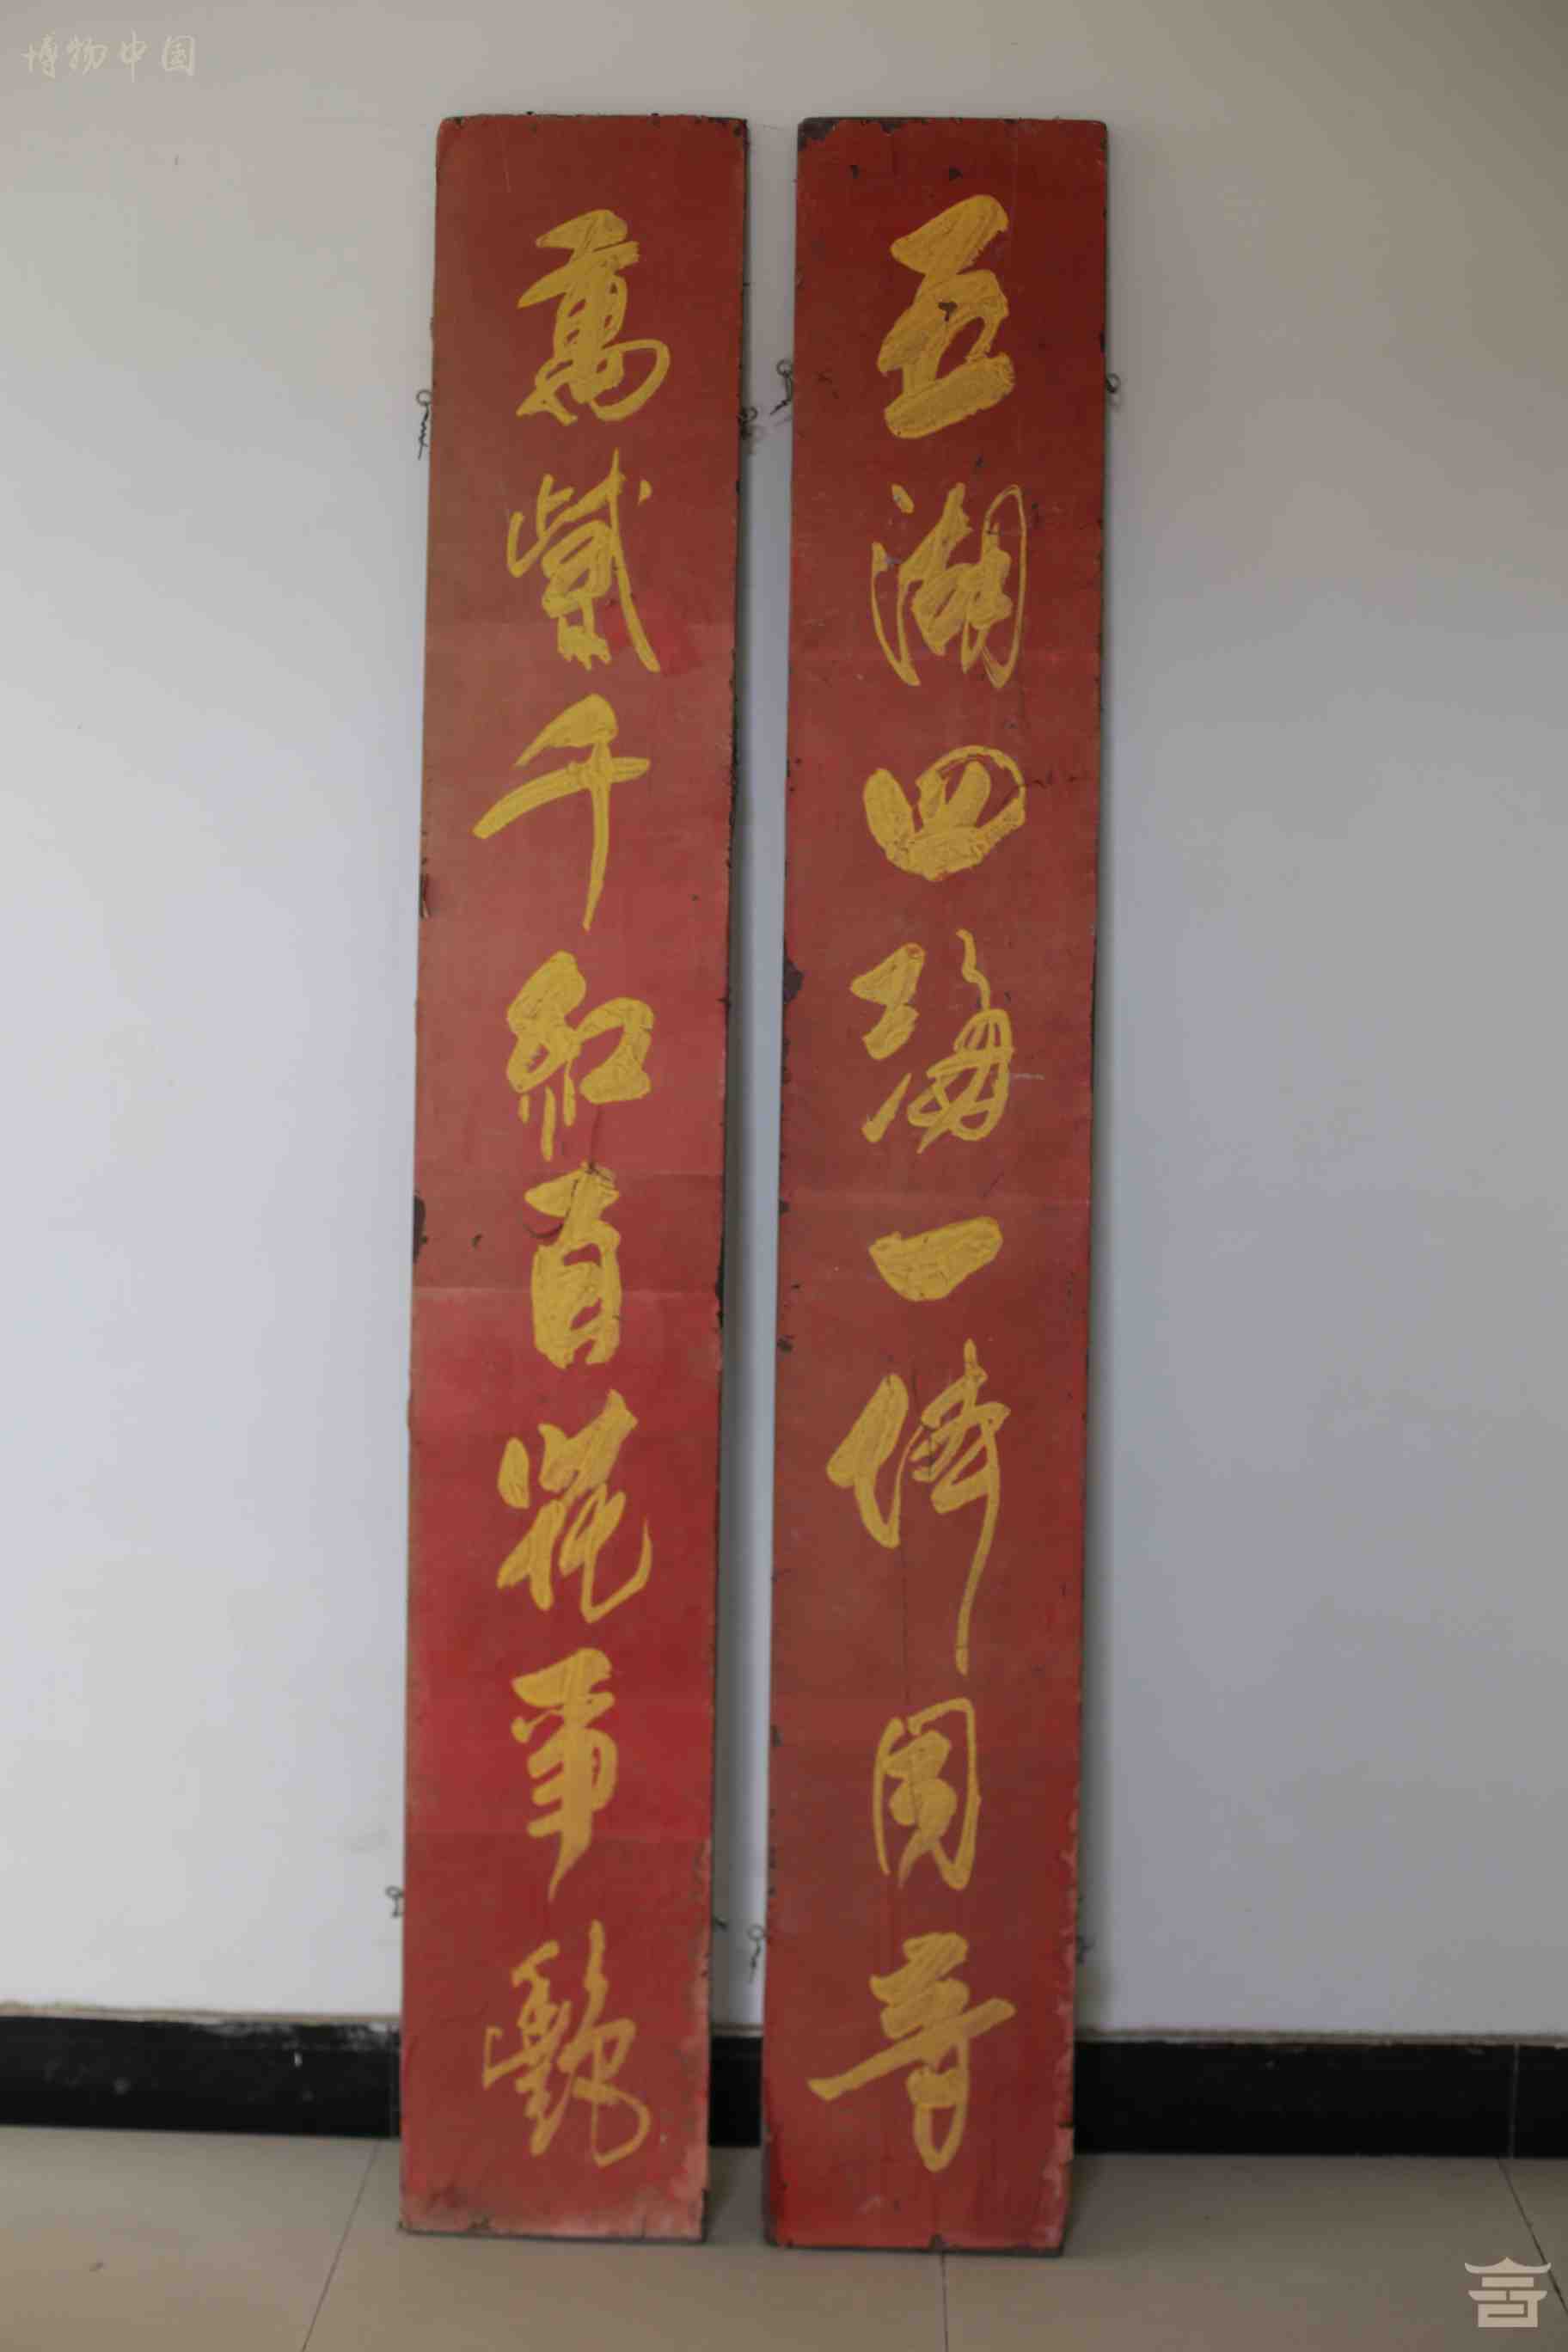 五湖四海一体同音
萬紫千紅百花爭艷
博物中国